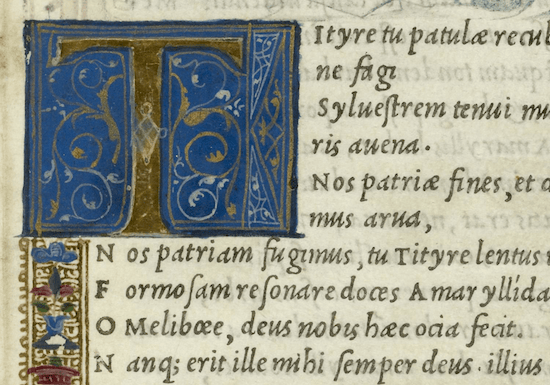 Tityre tu patulæ recub
ne fagi
Syluestrem tenui mu
ris auena.
Nos patriæ fines, et d
mus arua,
Nos patriam fugimus, tu Tityre lentus
Formosam resonare doces Amaryllida
O Meliboee, deus nobis hæc ocia fecit.
Nanq; erit ille mihi semper deus. illius